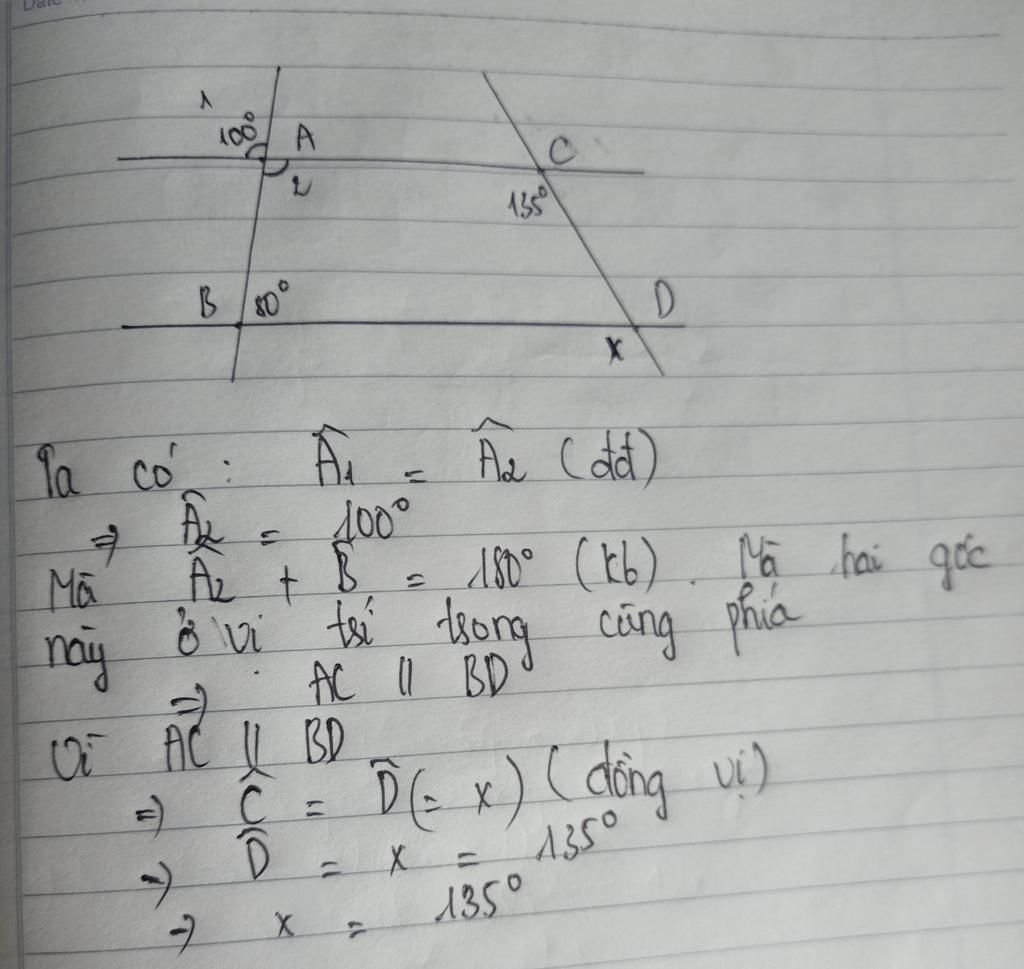 Date
1
100° A
C
2
135°
B 80° D
x
Ta có : Â1 = Â2 (đđ)
⇒ Â2 = 100°
Mà Â2 + B̂ = 180° (kb). Mà hai góc
này ở vị trí trong cùng phía
⇒ AC || BD
Vì AC || BD
⇒ Ĉ = D̂ (= x) (đồng vị)
⇒ D̂ = x = 135°
→ x = 135°